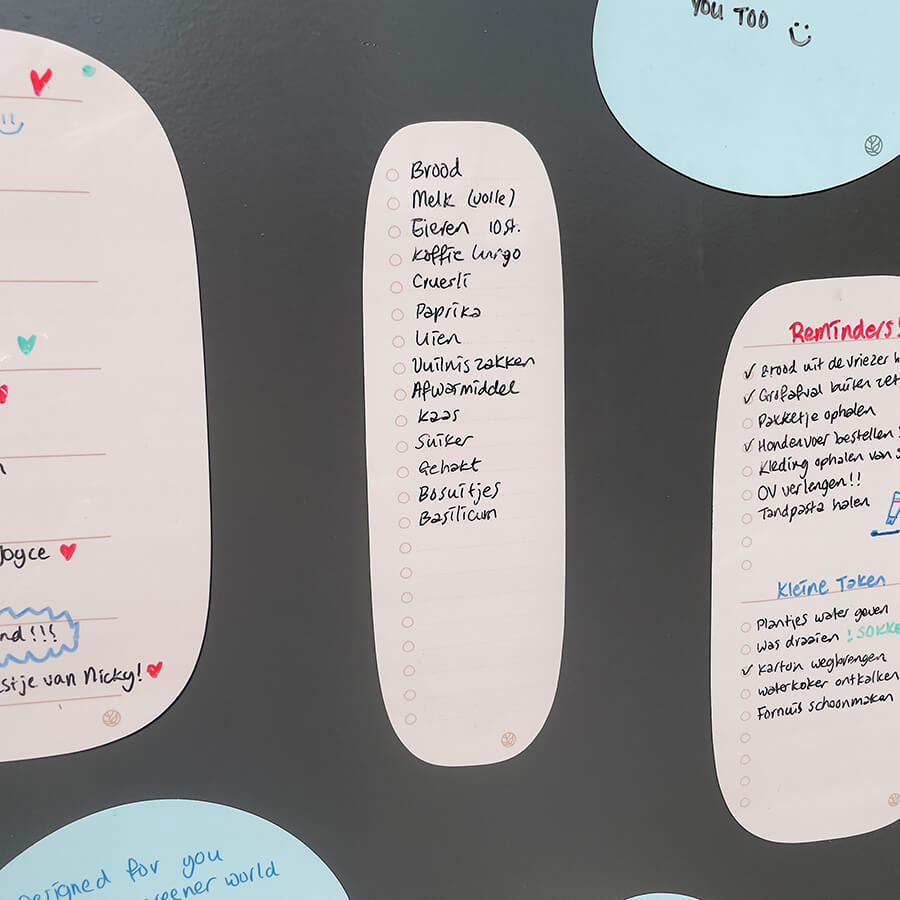 YOU TOO
Joyce
nd!!!
stje van Nicky!
Brood
Melk (volle)
Eieren 10 st.
Koffie lungo
Cruesli
Paprika
Uien
Vuilniszakken
Afwasmiddel
Kaas
Suiker
Gehakt
Bosuitjes
Basilicum
Reminders!
Brood uit de vriezer h
Grofafval buiten zet
Pakketje ophalen
Hondenvoer bestellen
Kleding ophalen van s
OV verlengen!!
Tandpasta halen
Kleine Taken
Plantjes water geven
Was draaien ! SOKKE
Karton wegbrengen
Waterkoker ontkalken
Fornuis schoonmaken
Designed for you
reener world